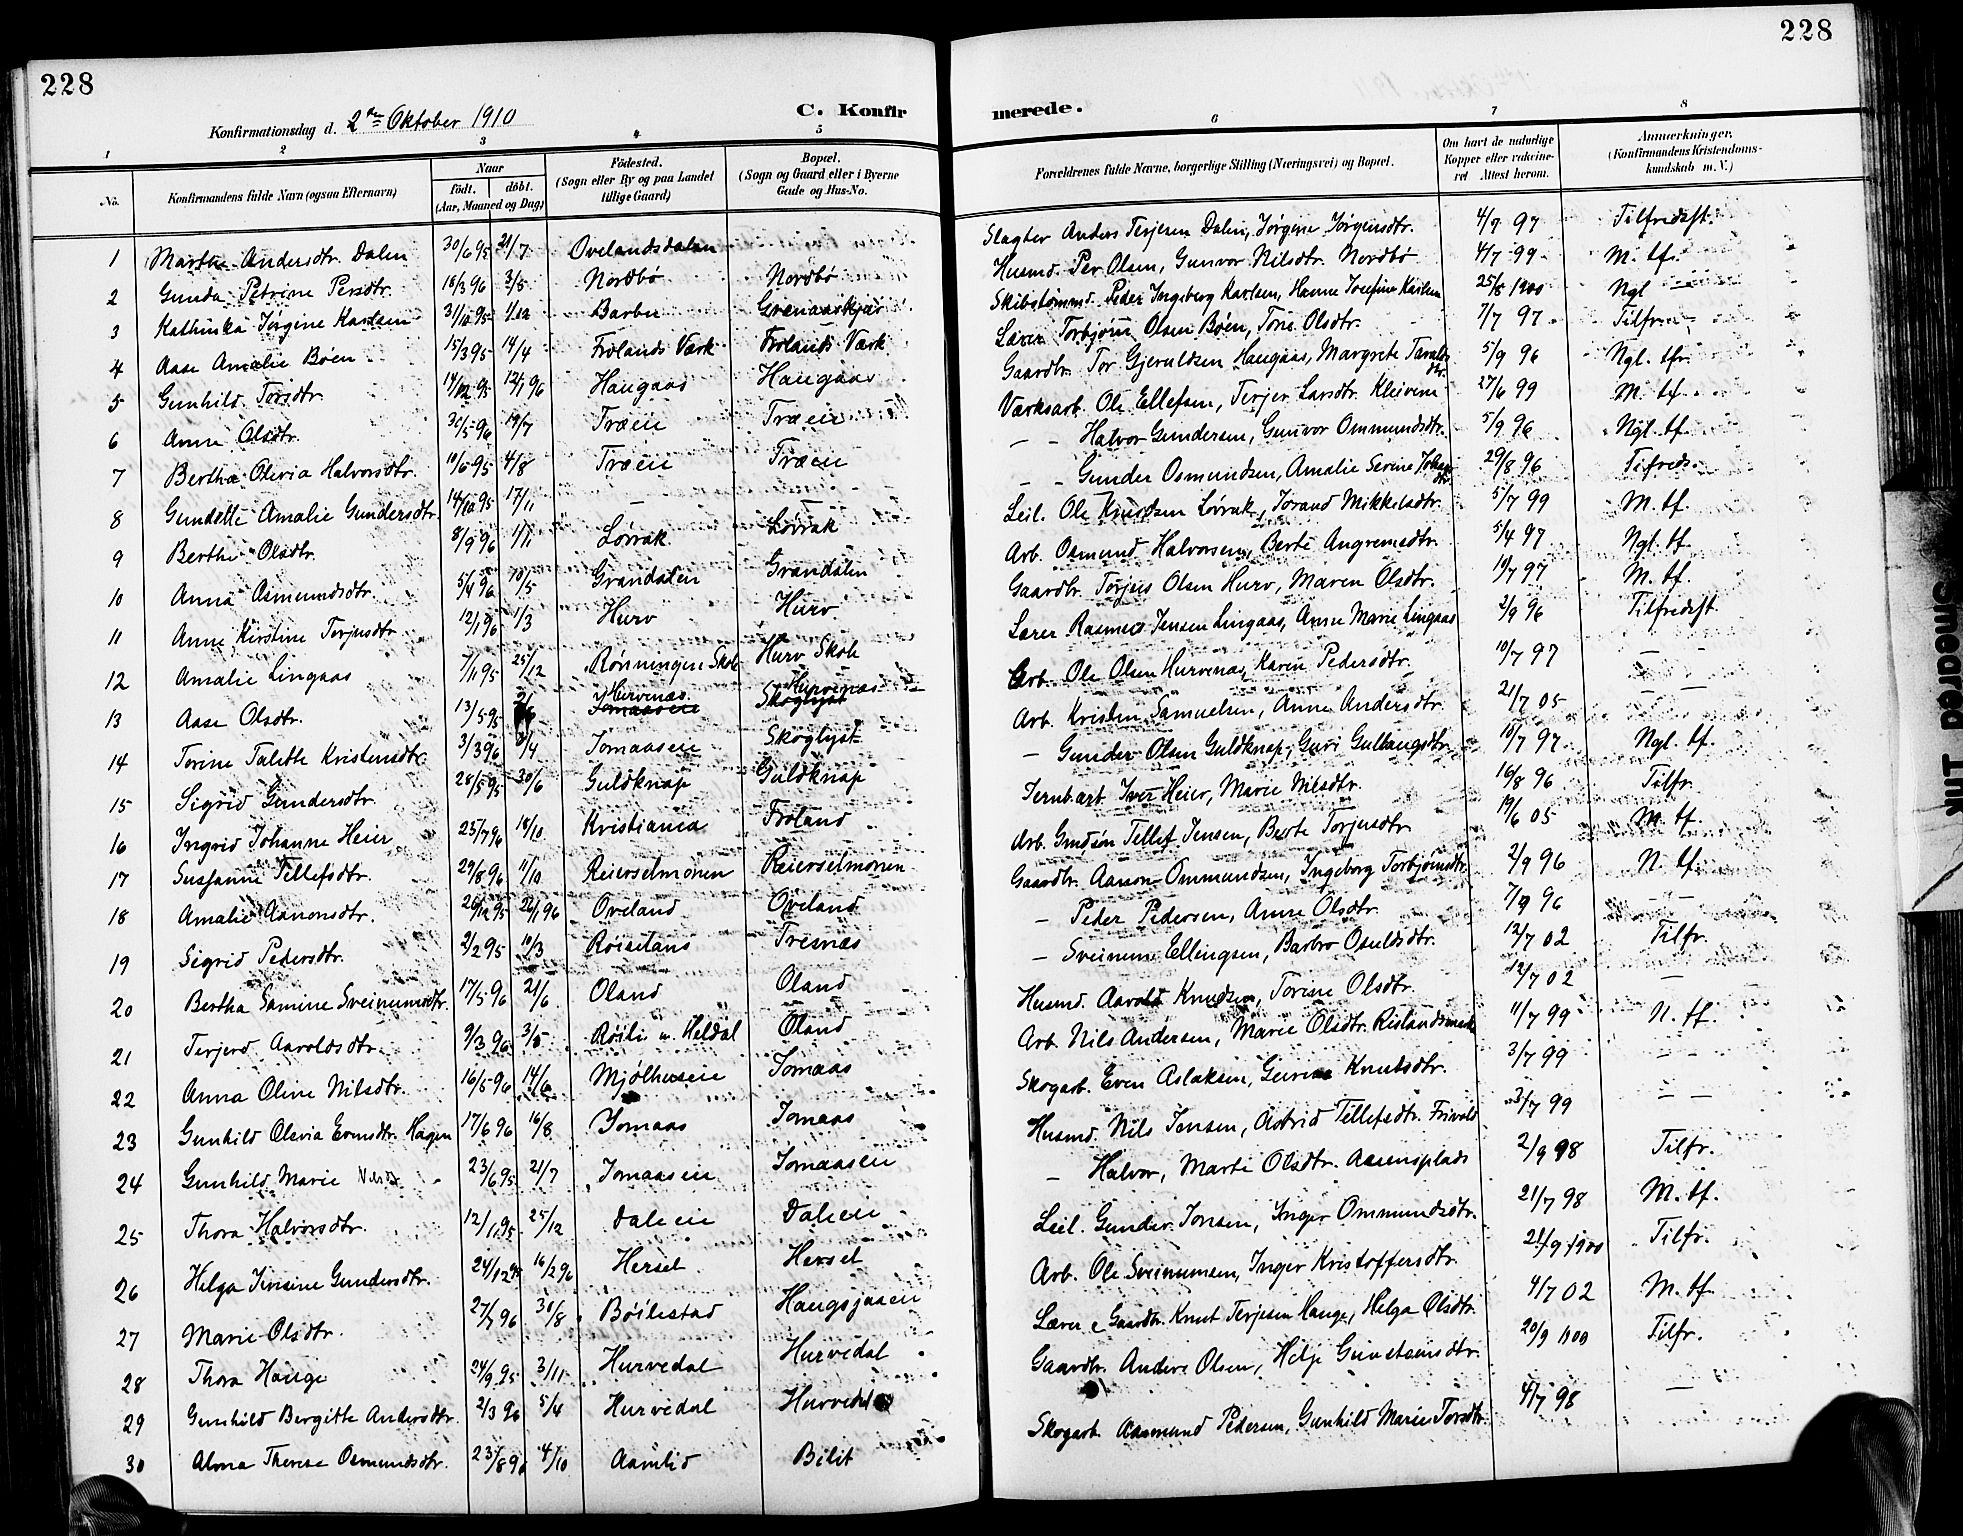 228
Konfirmationsdag d. 2den Oktober 1910
C. Konfir
1 2 3 4 5
No. Konfirmandens fulde Navn (ogsaa Efternavn) Naar født. døbt. (Aar, Maaned og Dag) Födested. (Sogn eller By og paa Landet tillige Gaard) Bopæl. (Sogn og Gaard eller i Byerne Gade og Hus-No.
1 Marthe Andersdtr. Dalen 30/6 95 21/7 Ovelandsdalen
2 Gunda Petrine Persdtr. 18/3 96 3/5 Nordbø Nordbø
3 Kathinka Jørgine Karlsen 31/10 95 1/12 Barbu Grenaaskjær
4 Aase Amalie Bøen 15/3 95 14/4 Frolands Værk Frolands Værk
5 Gunhild Torsdtr. 14/12 95 12/1 96 Haugaas Haugaas
6 Anne Olsdtr. 30/5 96 19/7 Træen Træen
7 Bertha Olevia Halvorsdtr. 10/6 95 4/8 Træen Træen
8 Gundelle Amalie Gundersdtr. 14/10 95 17/11 — —
9 Berthe Olsdtr. 8/9 96 1/11 Løvrak Løvrak
10 Anna Osmundsdtr. 5/4 96 10/5 Grandalen Grandalen
11 Anne Kirstine Terjusdtr. 12/1 96 1/3 Hurv Hurv
12 Amalie Lingaas 7/11 95 25/12 Rønningen Skole Hurv Skole
13 Aase Olsdtr. 13/5 95 Hurvenæs Jomaaseie Hurvenæs Skoglyst
14 Torine Talette Kristensdtr. 3/3 96 /4 Jomaaseie Skoglyst
15 Sigrid Gundersdtr. 28/5 95 30/6 Guldknap Guldknap
16 Ingrid Johanne Heier 25/7 96 18/10 Kristiania Froland
17 Susanne Tellefsdtr. 29/8 96 11/10 Reierselmoren Reierselmoren
18 Amalie Aanonsdtr. 26/12 95 26/1 96 Oveland Oveland
19 Sigrid Pedersdtr. 2/2 95 10/3 Røiseland Tresnæs
20 Bertha Samine Sveinumsdtr. 17/5 96 21/6 Oland Oland
21 Terjerd Aavoldsdtr. 9/3 96 3/5 Røili u. Heldal Oland
22 Anna Oline Nilsdtr. 16/5 96 14/6 Mjølhuseie Jomaas
23 Gunhild Olevia Evensdtr. Hagen 17/6 96 16/8 Jomaas Jomaas
24 Gunhild Marie Nilsdtr 23/6 95 21/7 Jomaaseie Jomaaseie
25 Thora Halvorsdtr. 12/11 95 25/12 Daleeie Daleeie
26 Helga Jensine Gundersdtr. 24/12 95 16/2 96 Hersel Hersel
27 Marie Olsdtr. 27/7 96 30/8 Bøilestad Haugsjaaeie
28 Thora Hauge 24/9 95 3/11 Hurvedal Hurvedal
29 Gunhild Bergitte Andersdtr. 2/3 96 5/4 Hurvedal Hurvedal
30 Alma Therese Osmundsdtr. 23/8 96 4/10 Aamlid Bilit
228
merede.
6 7 8
Forældrenes fulde Navne, borgerlige Stilling (Næringsvei) og Bopæl. Om havt de naturlige Kopper eller vaccineret Attest herom. Anmærkninger. (Konfirmandens Kristendomskundskab m. V.)
Slagter Anders Terjesen Dalen, Jørgine Jørgensdtr. 4/9 97 Tilfredsst.
Husmd. Per Olsen, Gunvor Nilsdtr. Nordbø 4/7 99 M. tf.
Skibstømmd. Peder Ingeberg Karlsen, Hanne Josefine Karlsen 25/8 1900 Ngl —
Lærer Torbjørn Olsen Bøen, Tone Olsdtr. 7/7 97 Tilfr.
Gaardbr. Tor Gjeruldsen Haugaas, Margrete Taraldsdtr. 5/9 96 Ngl. tfr.
Værksarb. Ole Ellefsen, Terjer Larsdtr. Kleivene 27/6 99 M. tf.
— — Halvor Gundersen, Gunvor Ommundsdtr. 5/9 96 Ngl. tf.
— — Gunder Osmundsen, Amalie Serine 29/8 96 Tilfreds.
Leil. Ole Knudsen Løvrak, Torand Mikkelsdtr. 5/7 99 M. tf.
Arb. Osmund Halvorsen, Berte Angremsdtr. 5/4 97 Ngl. tf.
Gaardbr. Torjus Olsen Hurv, Maren Olsdtr. 19/7 97 M. tf.
Lærer Rasmus Jensen Lingaas, Anne Marie Lingaas 2/9 96 Tilfredsst.
Arb. Ole Olsen Hurvenæs, Karen Pedersdtr. 10/7 97 — —
Arb. Kristen Samuelsen, Anne Andersdtr. 21/7 05 — —
— Gunder Olsen Guldknap, Guri Gullaugsdtr. 10/7 97 Ngl. tf.
Jernb.arb. Iver Heier, Marie Nilsdtr. 16/8 96 Tilfr.
Arb. Gmdsøn Tellef Jensen, Berte Torjusdtr. 19/6 05 M. tf.
Gaardbr. Aanon Ommundsen, Ingeborg Torbjørnsdtr. 2/9 96 N. tf.
— Peder Pedersen, Anne Olsdtr. 7/9 96 — —
— Sveinum Ellingsen, Barbro Osuldsdtr. 12/7 02 Tilfr.
Husmd. Aavold Knudsen, Torine Olsdtr. 12/7 02 —
Arb. Nils Andersen, Marie Olsdtr. 11/7 99 N. tf.
Skogarb. Even Aslaksen, Knutsdtr. 3/7 99 — —
Husmd. Nils Jensen, Astrid Tellefsdtr. Frivold 3/7 99 — —
— Halvor, Marte Olsdtr. Aasensplads 2/9 98 Tilfr.
Leil. Gunder Jonsen, Inger Ommundsdtr. 21/7 98 M. tf.
Arb. Ole Sveinumsen, Inger Kristoffersdtr. 21/9 1900 Tilfr.
Lærer & Gaardbr. Knut Terjesen Hauge, Helga Olsdtr. 4/7 02 M. tf.
Gaardbr. Anders Olsen, Helje Gunsteinsdtr. 20/9 1900 Tilfr.
Skogarb. Aasmund Pedersen, Gunhild Marie Torsdtr. 4/7 98 —
Smeared Ink